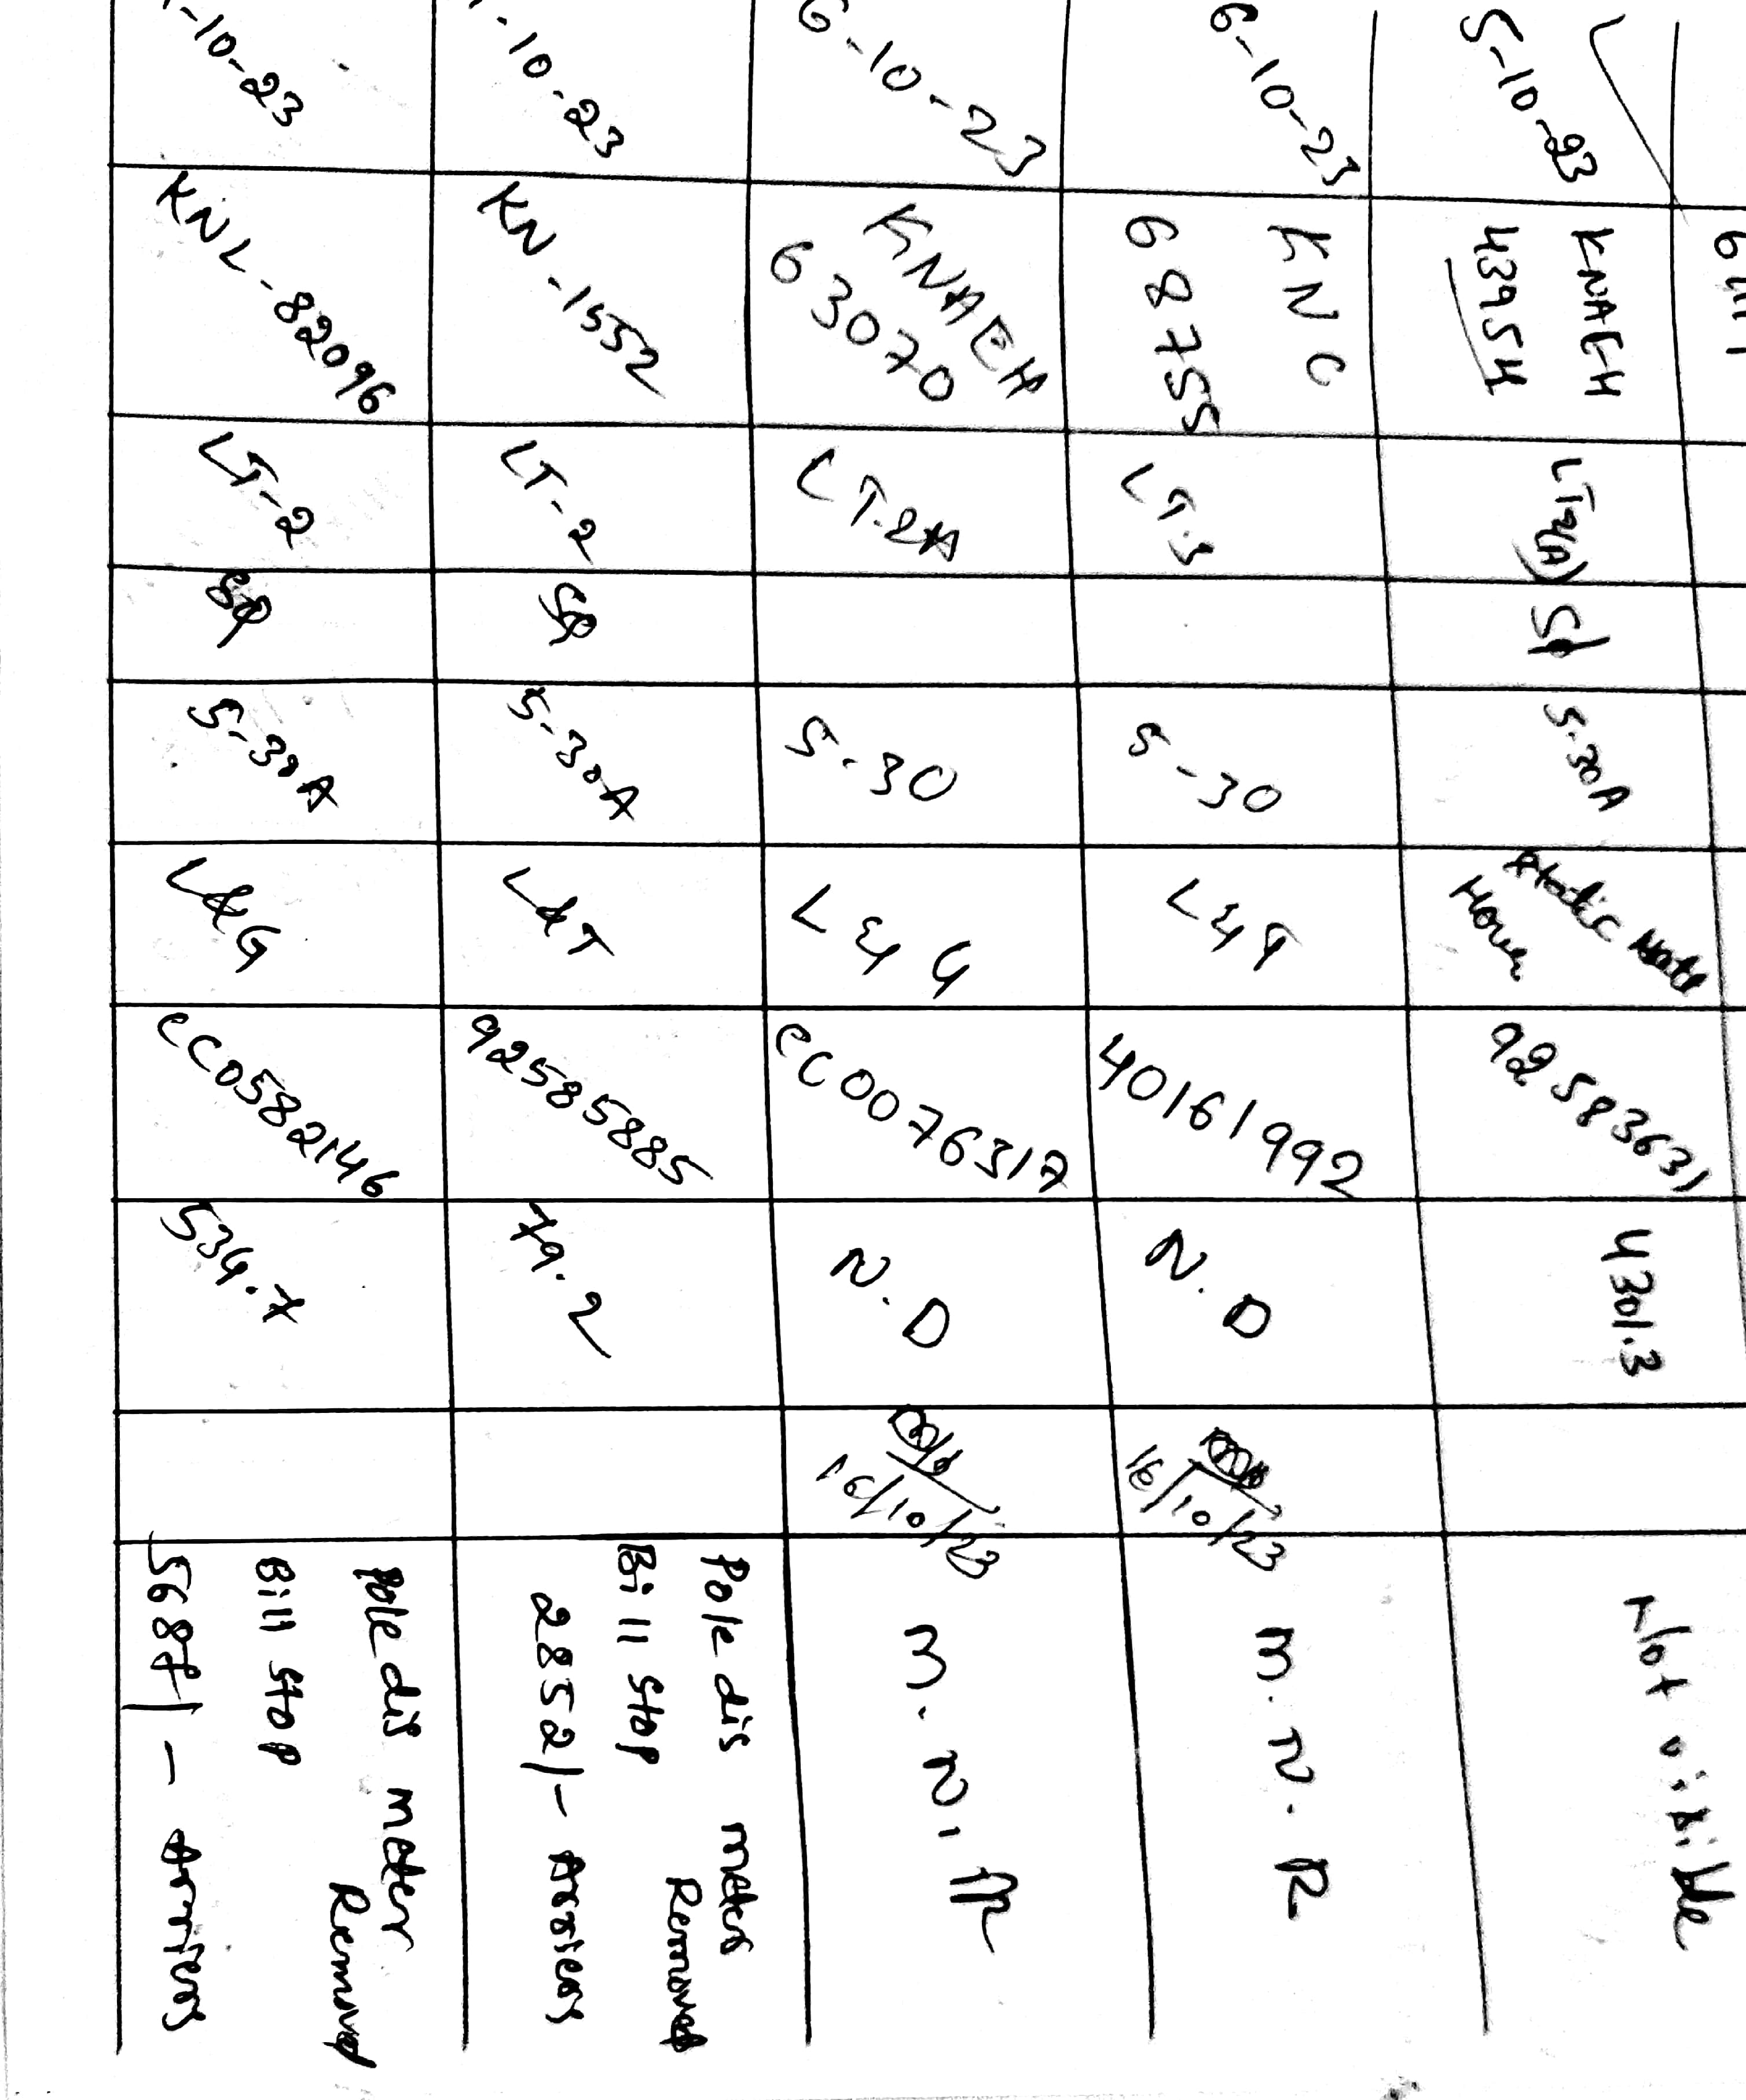 5-10-23
KNAEH
43954
LT-2(A)
Sφ
5-30A
92583631
4301.3
Not visible
6-10-23
KNC
68755
LT.5
5-30
L&T
40161992
N.D
16/10/23
M.N.R
6-10-23
KNAEH
63070
LT-2A
5-30
L&G
CC0076317
N.D
16/10/23
M.N.R
-10-23
KN-1552
LT-2
5-30A
L&T
92585885
79.2
Pole dis meter Removed
Bill Stop
2852/- Arriers
-10-23
KNL-82096
LT-2
5-30A
L&G
CC0582146
534.7
Pole dis meter Removed
Bill Stop
568/- Arriers